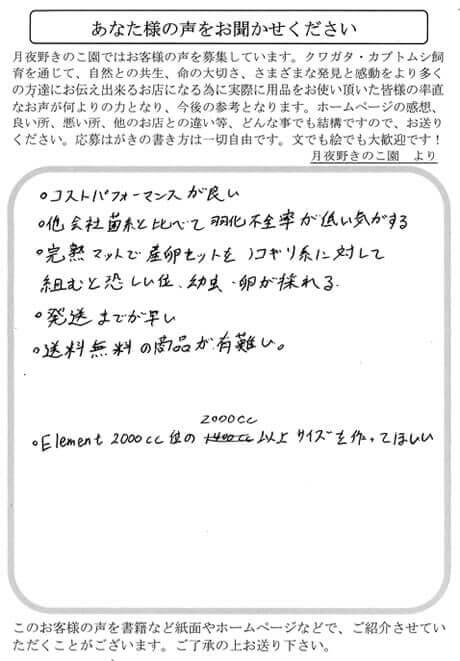 あなた様の声をお聞かせください
月夜野きのこ園ではお客様の声を募集しています。クワガタ・カブトムシ飼
育を通じて、自然との共生、命の大切さ、さまざまな発見と感動をより多く
の方達にお伝え出来るお店になる為に実際に用品をお使い頂いた皆様の率直
なお声が何よりの力となり、今後の参考となります。ホームページの感想、
良い所、悪い所、他のお店との違い等、どんな事でも結構ですので、お送り
ください。応募はがきの書き方は一切自由です。文でも絵でも大歓迎です！
月夜野きのこ園　より
○コストパフォーマンスが良い
○他会社菌糸と比べて羽化不全率が低い気がする
○完熟マットで産卵セットをノコギリ系に対して
組むと恐しい位、幼虫・卵が採れる。
○発送までが早い
○送料無料の商品が有難い。
2000cc
○Element 2000cc位の 1400cc 以上サイズを作ってほしい
このお客様の声を書籍など紙面やホームページなどで、ご紹介させてい
ただくことがございます。ご了承の上お送り下さい。